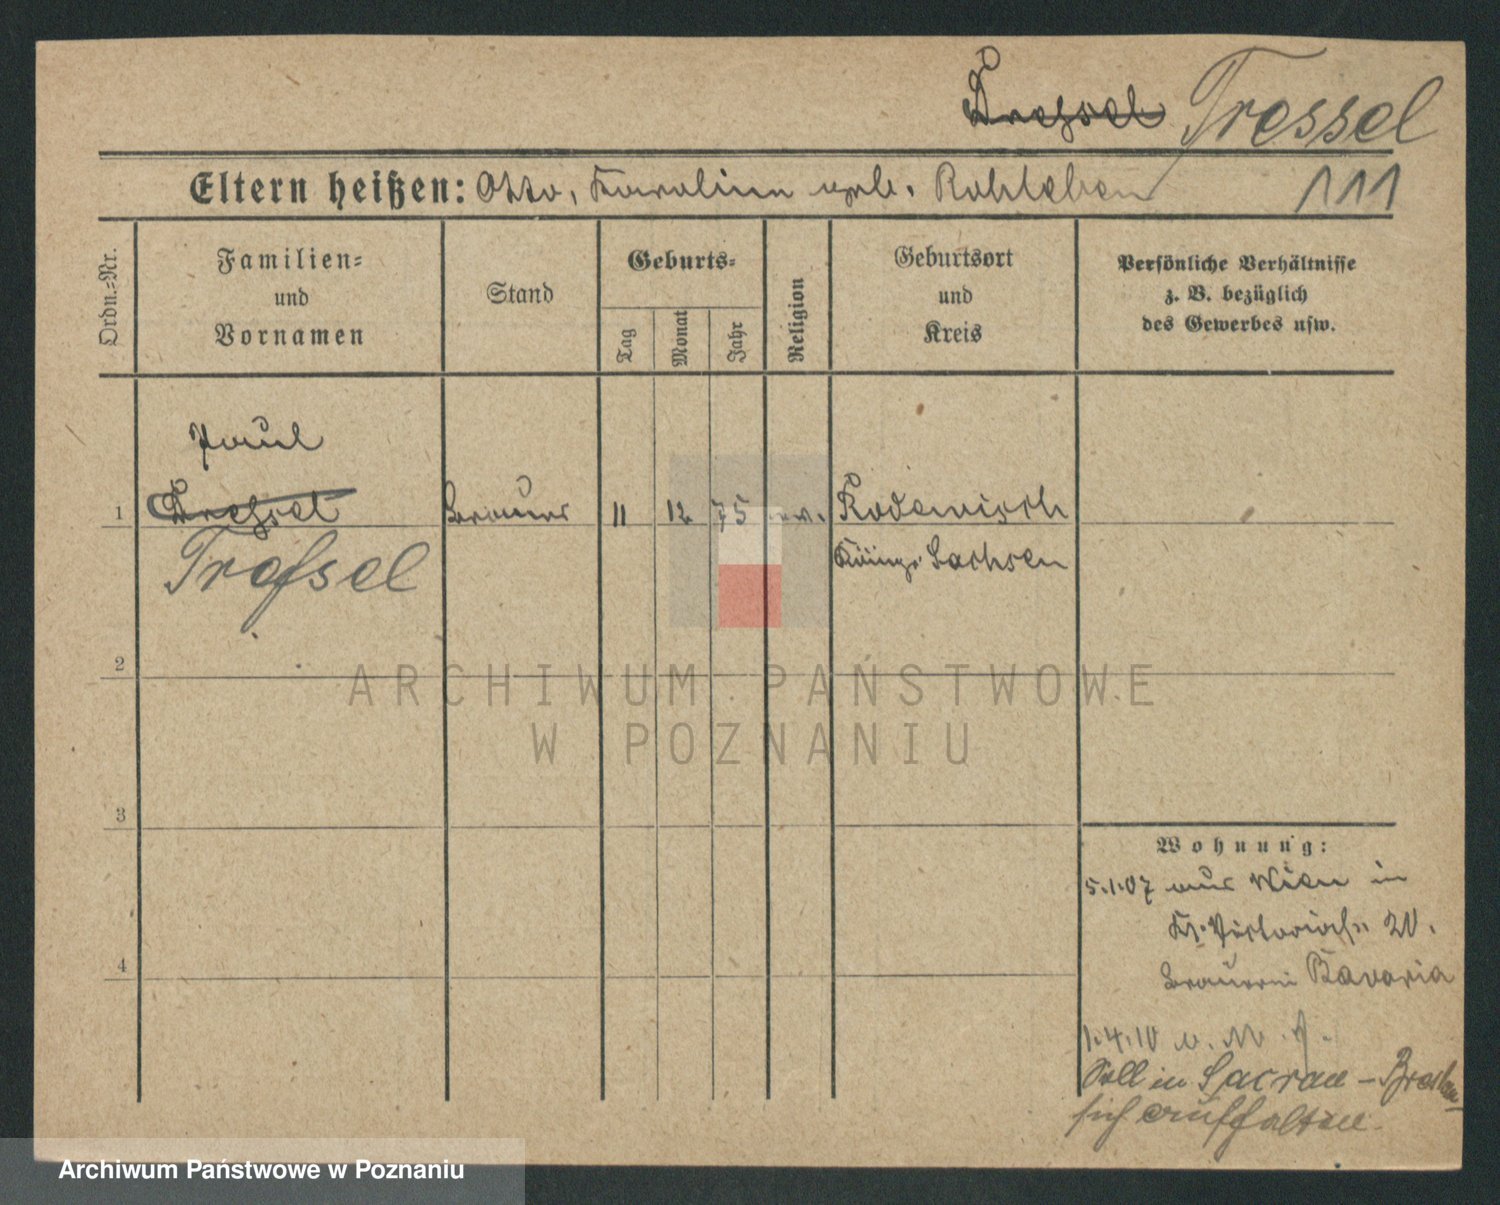 Dressel Tressel
Eltern heißen: Otto, Karoline geb. Rohleben
111
Ordn.-Nr.
Familien-
und
Vornamen
Stand
Geburts-
Tag
Monat
Jahr
Religion
Geburtsort
und
Kreis
Persönliche Verhältnisse
z. B. bezüglich
des Gewerbes usw.
Paul
1 Dressel Brauer 11 12 75 ev. Rodewisch
Trefsel
Königr. Sachsen
2
3
4
Wohnung:
5.1.07 aus Wien in
20.
Brauerei Bavaria
1.4.10
Soll in Sacrau - Breslau
sich aufhalten.
ARCHIWUM PAŃSTWOWE
W POZNANIU
Archiwum Państwowe w Poznaniu